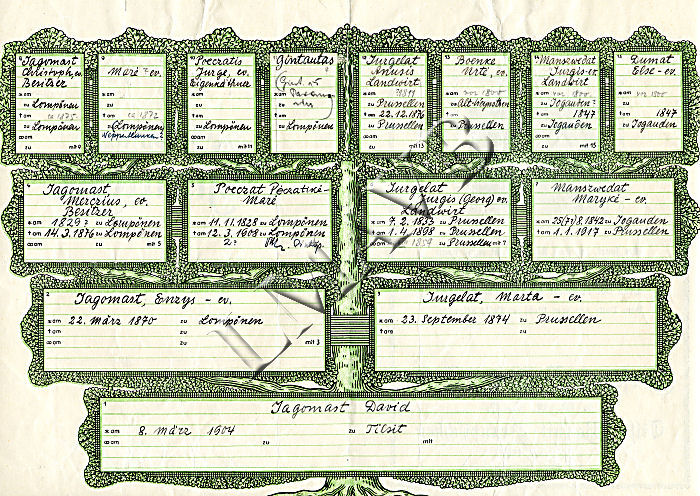 Jagomast
Christoph, ev.
Besitzer
* am
zu Lompönen
† am ca 1875
zu Lompönen
∞ am mit 9
9
Maré - ev.
* am
zu
† am ca 1872
zu Lompönen
∞ am
10
Poecratis
Jurge, ev.
Eigenkätner
* am
zu Lompönen
† am
zu Lompönen
∞ am
Gintautas
* am
zu
† am
zu Lompönen
∞ am
12
Jurgelat
Ansis
Landwirt
* am
zu Prusellen
† am 22.12.1876
zu Prusellen
∞ am mit 13
13
Boenke
Urte, ev.
* am vor 1800
zu
† am
zu Prusellen
∞ am
14
Manszwedat
Jurgis - ev.
Landwirt
* am vor 1800
zu Jogauden?
† am 1847
zu Jogauden
∞ am mit 15
Dumat
Else - ev.
* am vor 1800
zu
† am 1847
zu Jogauden
4
Jagomast,
Merczius, ev.
Besitzer
* am 1829? zu Lompönen
† am 14.3.1876 zu Lompönen
∞ am zu mit 5
5
Poecrat Pecratiké-
Maré
* am 11.11.1828 zu Lompönen
† am 12.3.1908 zu Lompönen
Jurgelat
Jurgis (Georg) ev.
Landwirt
* am 7.2.1833 zu Prusellen
† am 1.4.1898 zu Prusellen
∞ am 1859 zu Prusellen mit 7
7
Manszwedat
Maryke - ev.
* am 25(27)/8.1842 zu Jogauden
† am 1.1.1917 zu Prusellen
∞ am zu
2
Jagomast, Enzys - ev.
* am 22. März 1870 zu Lompönen
† am zu
∞ am zu mit 3
3
Jurgelat, Marta - ev.
* am 23. September 1874 zu Prusellen
† am zu
∞ am zu
1
Jagomast David
* am 8. März 1904 zu Tilsit
∞ am zu mit